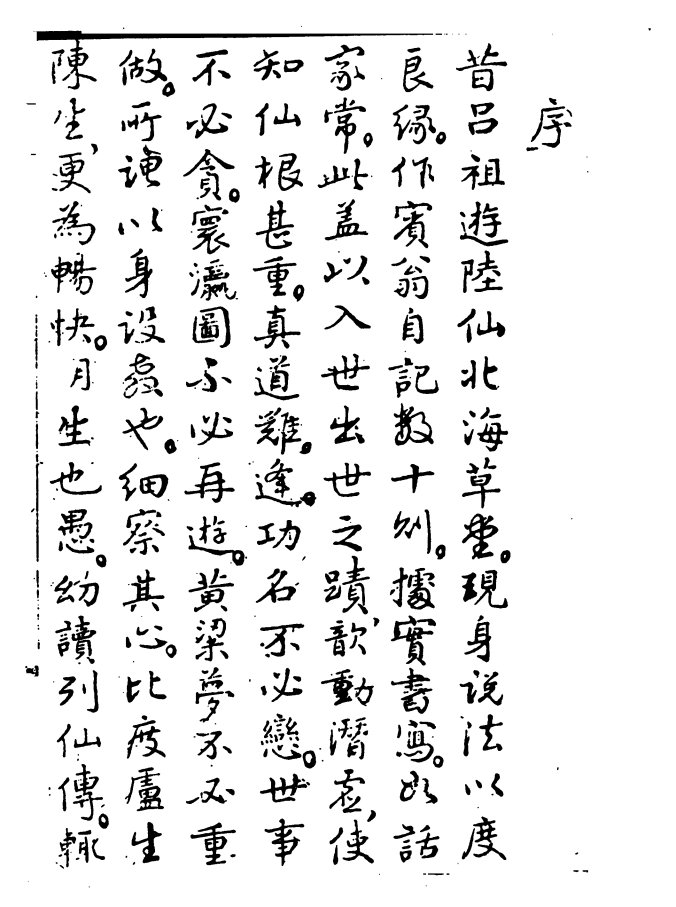 序
昔呂祖遊陸仙北海草堂。現身说法以度
良緣。作賓翁自記数十则。據實書寫。如話
家常。此盖以入世出世之蹟，歆動潛虚，使
知仙根甚重。真道難逢。功名不必戀。世事
不必貪。寰瀛圖不必再遊。黄粱夢不必重
做。所謂以身设教也。细察其心。比度盧生
陳生，更為暢快。月生也愚。幼讀列仙傳。輒